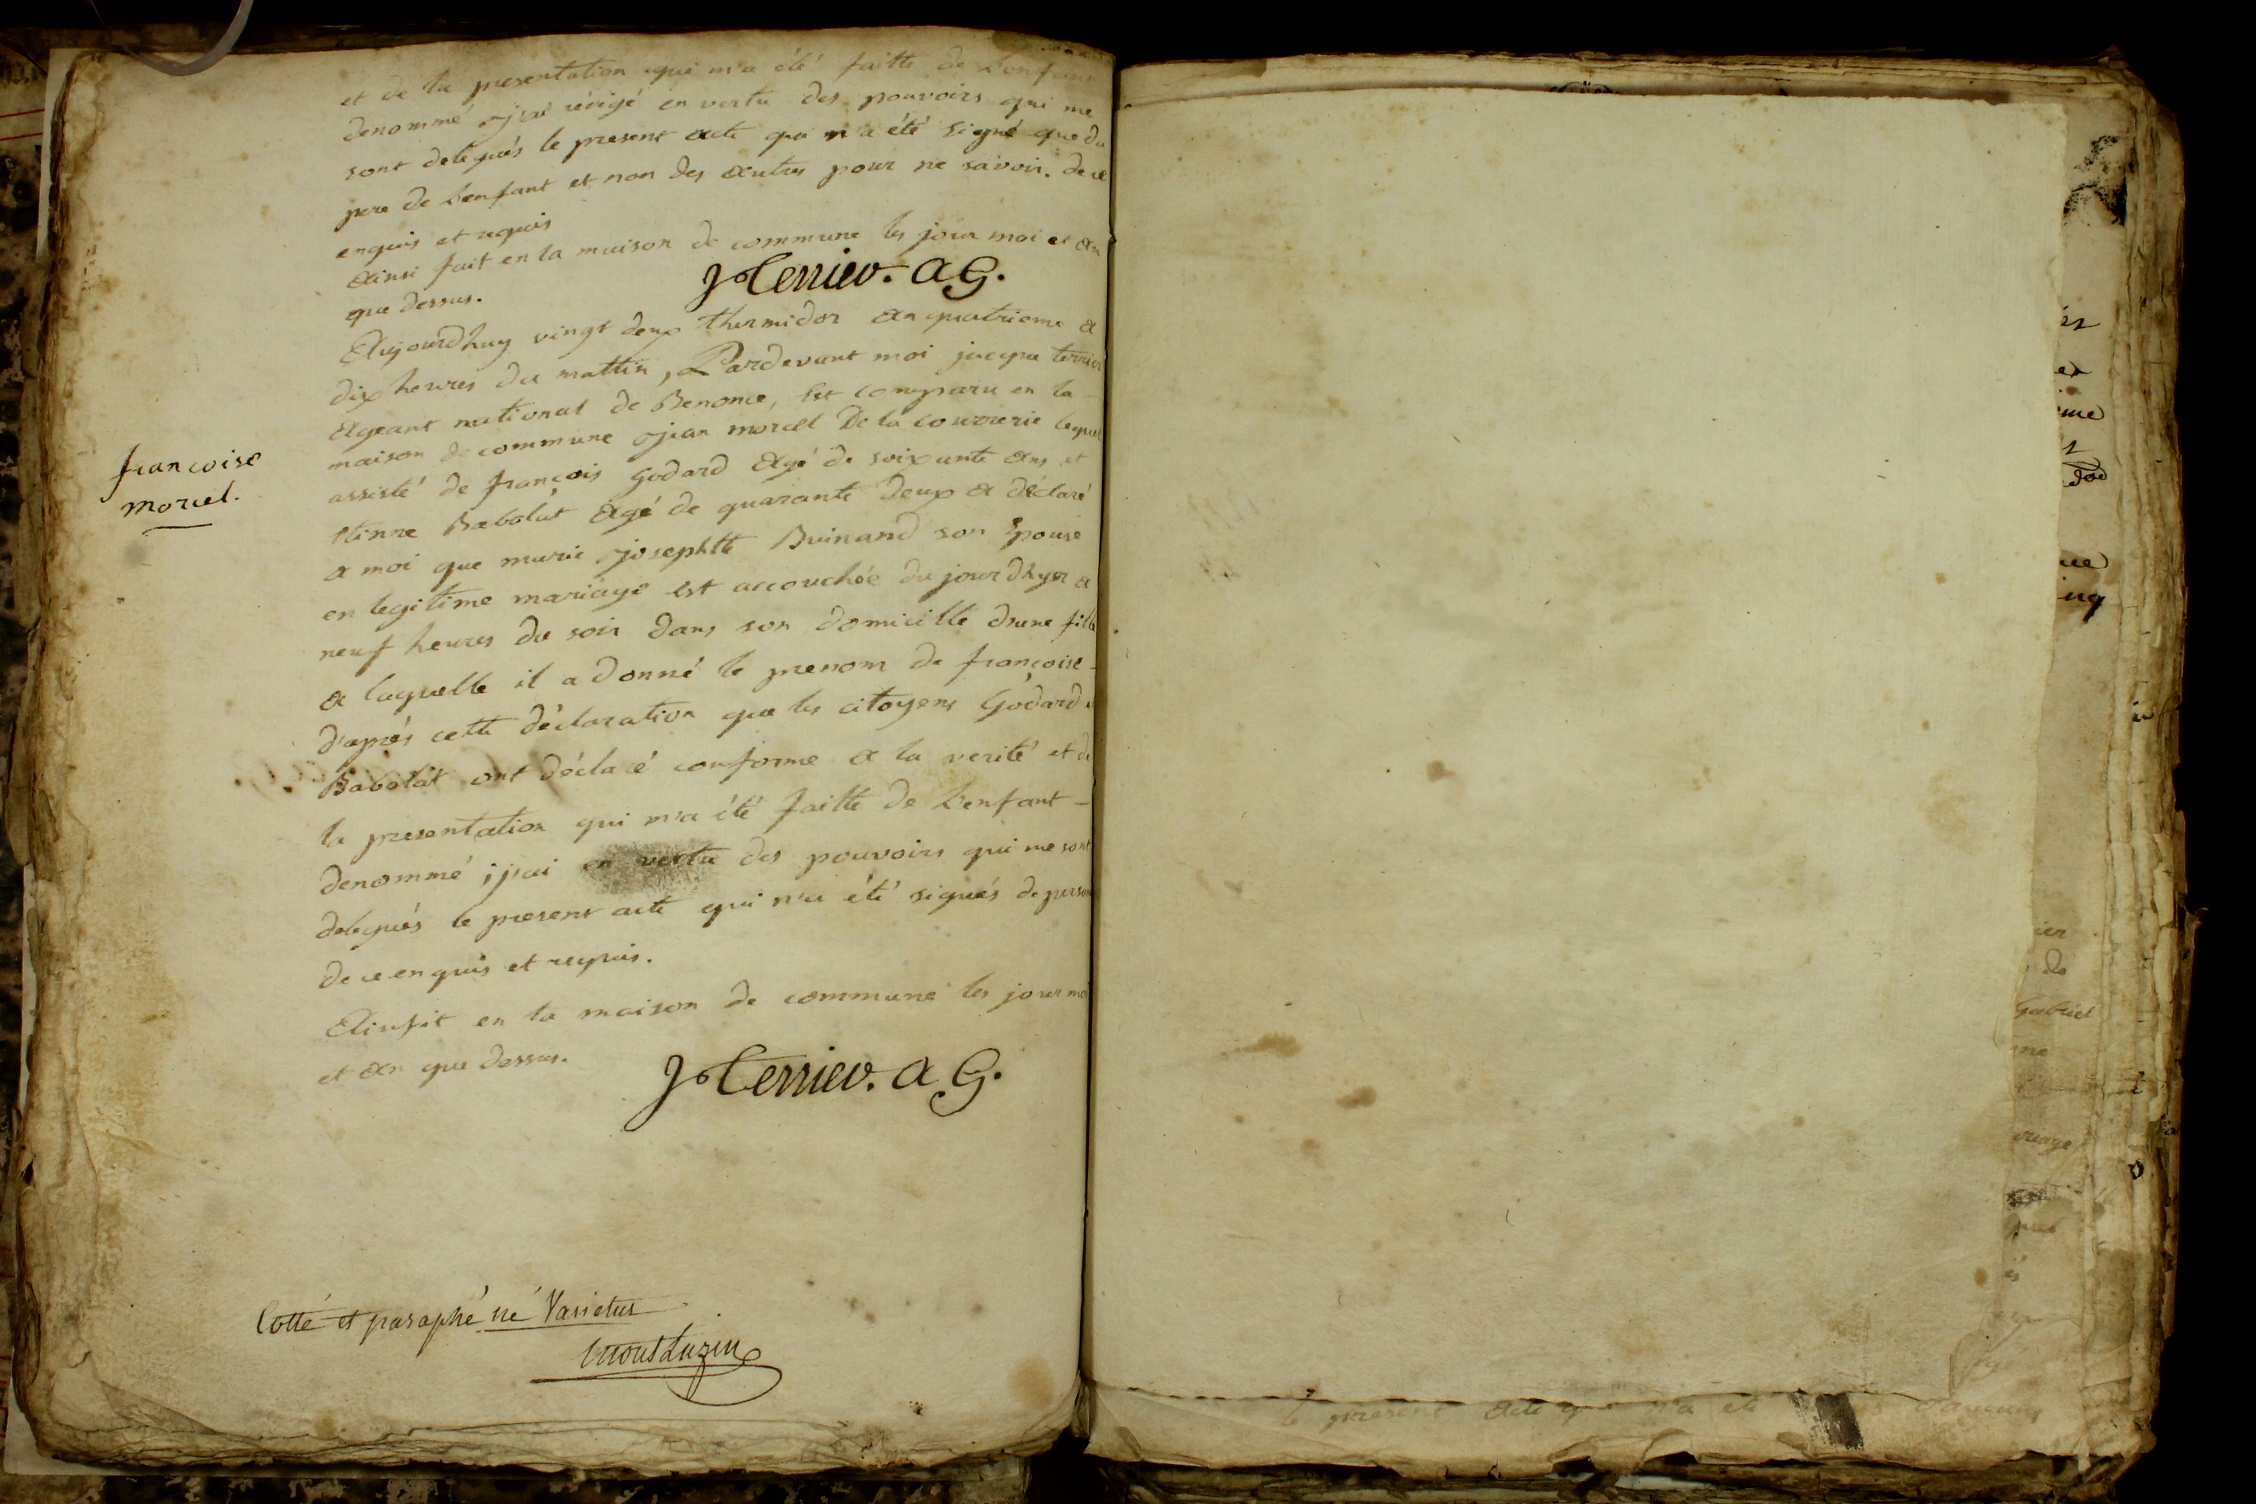 et de la presentation qui m'a été faitte de L'enfant
denommé j'ai rédigé en vertu des pouvoirs qui me
sont delegués le present acte qui n'a été signé que du
pere de L'enfant et non des autres pour ne savoir. de ce
enquis et requis
Ainsi fait en la maison de commune les jour moi et an
que dessus.
J Terrier. A G.
Aujourdhuy vingt deux thermidor an quatrieme a
dix heures du mattin, Pardevant moi jacque terrier
Ageant national de Benonce, Est comparu en la
maison de commune jean morcel De la courrerie lequel
françoise
morcel.
assisté de françois Godard agé de soixante ans et
Etinne Babolat agé de quarante deux a déclaré
a moi que marie josephtte Buinand son Epouse
en legitime mariage est accouchée du jour dhyer a
neuf heures du soir dans son domicille d'une fille
a laquelle il a donné le prenom de françoise
d'après cette déclaration que les citoyens Godard
Babolat ont déclaré conforme a la verité et de
la presentation qui m'a été faitte de L'enfant
denommé j'ai en vertu des pouvoirs qui me sont
delegués le present acte qui n'a été signés de person
de ce enquis et requis.
Ainfit en la maison de commune les jour moi
et an que dessus.
J Terrier. A G.
Cotté et paraphé né Varietur
le present acte n'a été
Gabriel